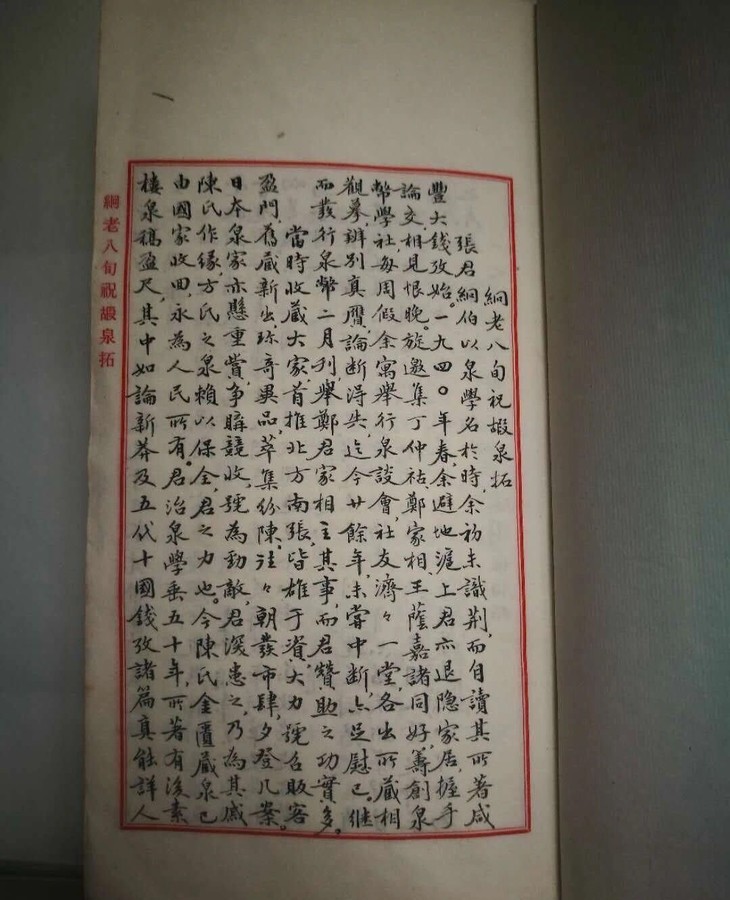 絅老八旬祝嘏泉拓
張君絅伯以泉學名於時，余初未識荆，而自讀其所著咸
豐大錢攷始。一九四〇年春，余避地滬上，君亦退隐家居，握手
論交，相見恨晚。旋邀集丁仲祜、鄭家相、王蔭嘉諸同好，籌創泉
幣學社，每周假余寓舉行泉談會，社友濟々一堂，各出所藏，相
觀摹，辨别真贋，論斷得失，迄今廿餘年，未嘗中断，亦足慰已。継
而發行泉幣二月刊，舉鄭君家相主其事，而君贊助之功實多。
當時收藏大家，首推北方南張，皆雄于資，大力號召，販客
盈門，舊藏新出，珎奇異品，萃集纷陳，往々朝發市肆，夕登几案。
日本泉家亦懸重賞，争購競收，號為勁敵，君深患之，乃為其戚
陳氏作緣，方氏之泉賴以保全，君之力也。今陳氏金匱藏泉已
由國家收回，永為人民所有。君治泉學垂五十年，所著有後素
樓泉稿盈尺，其中如論新莽及五代十國錢攷諸篇，真能詳人
絅老八旬祝嘏泉拓